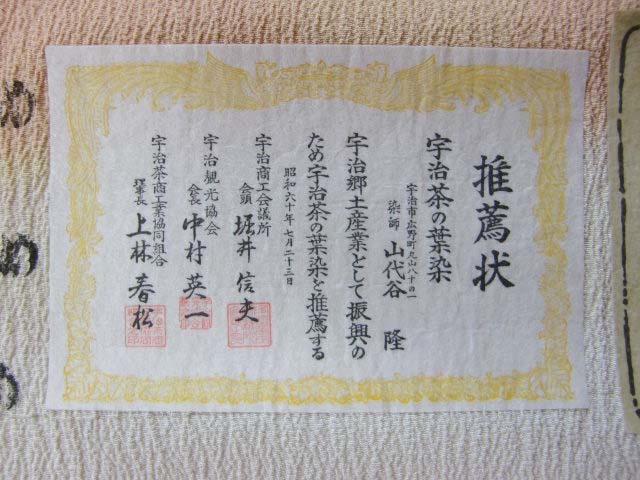 推薦状
宇治茶の葉染
宇治市広野町丸山八十の一
染師 山代谷 隆
宇治郷土産業として振興の
ため宇治茶の葉染を推薦する
昭和六十年七月二十三日
宇治商工会議所
会頭 堀井信夫
宇治観光協会
会長 中村英一
宇治茶商工業協同組合
理事長 上林春松
め
め